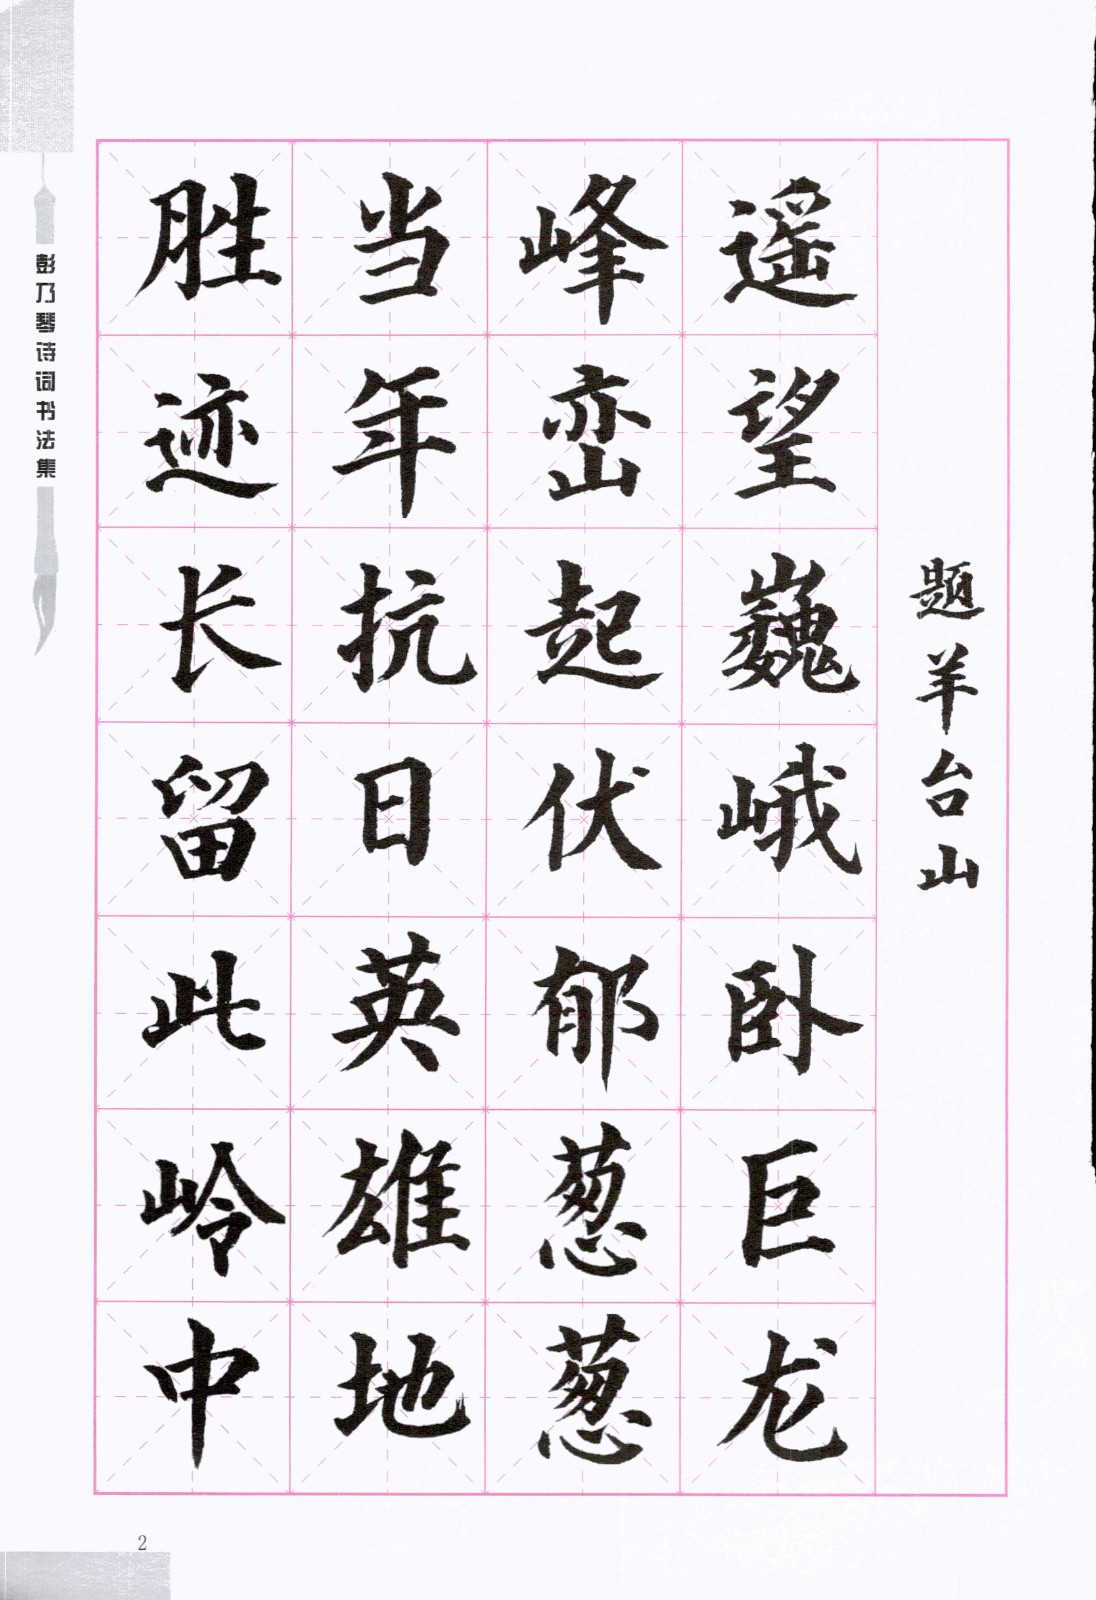 题羊台山
遥望巍峨卧巨龙
峰峦起伏郁葱葱
当年抗日英雄地
胜迹长留此岭中
彭乃琴诗词书法集
2